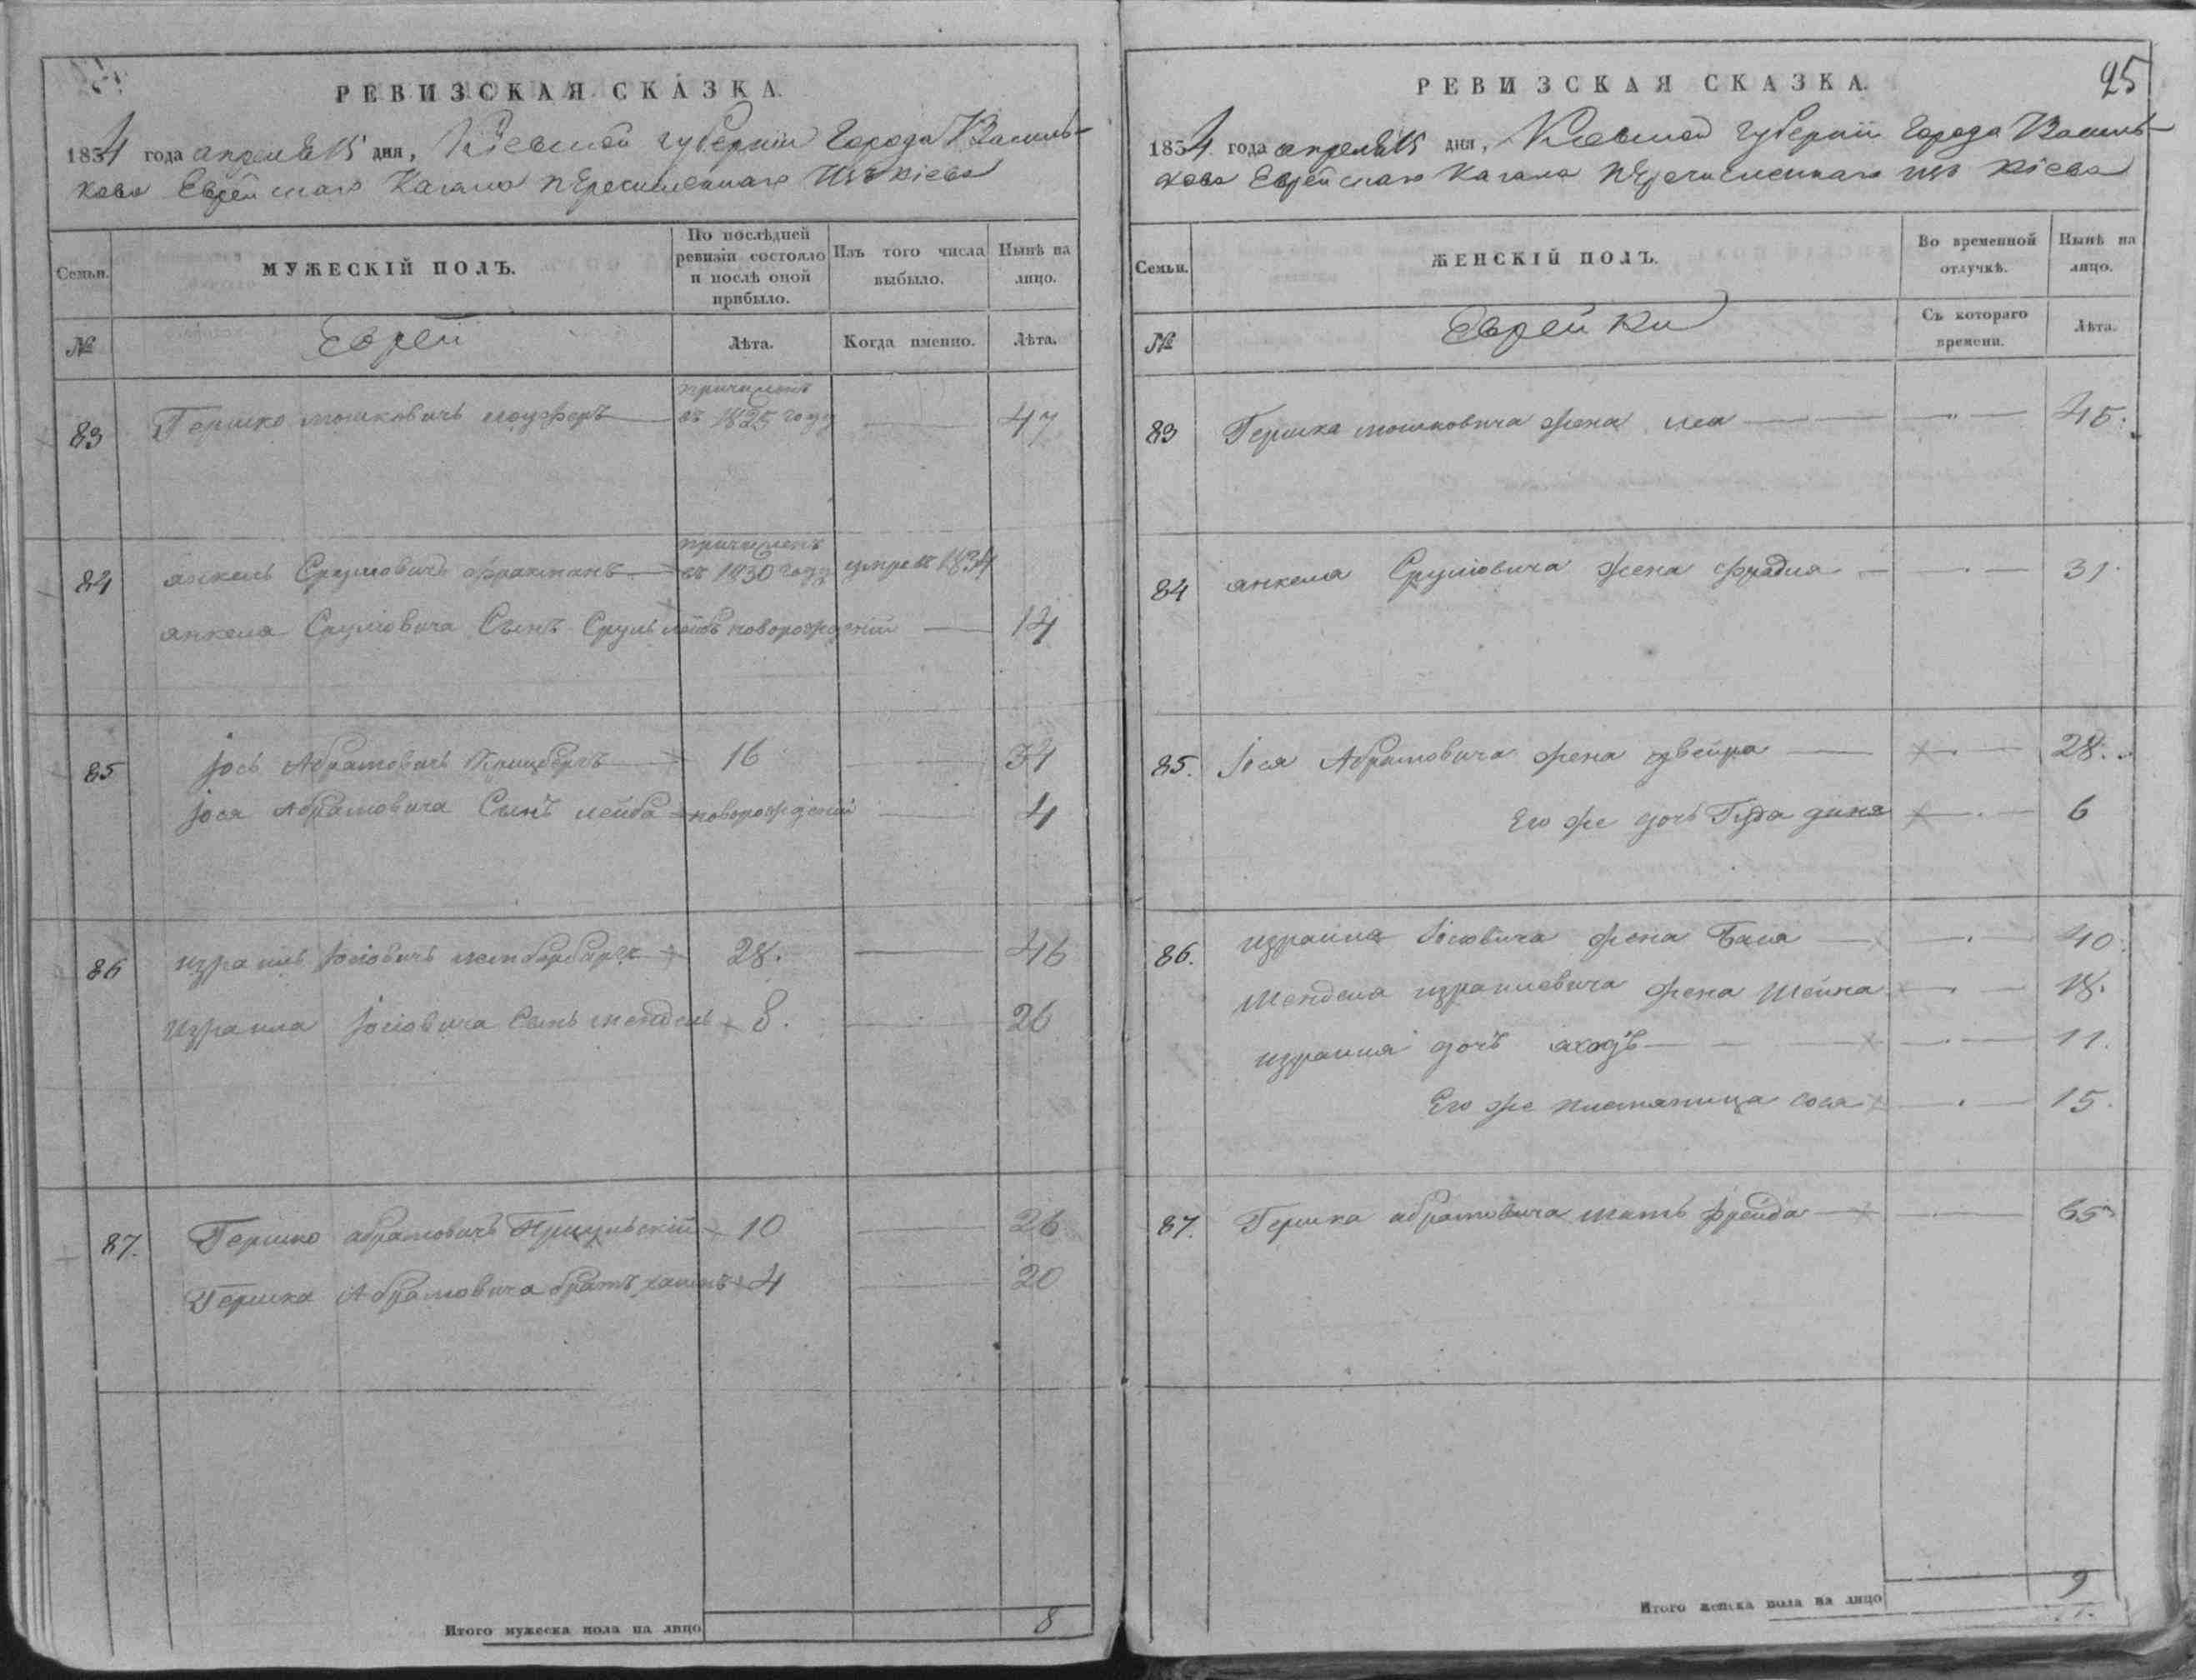 РЕВИЗСКАЯ СКАЗКА.
1834 года апреля 15 дня, Киевской губернии Города Василь-
кова Еврейскаго Кагала перечисленнаго Изъ Кіева
Семьи.
МУЖЕСКІЙ ПОЛЪ.
По послѣдней
ревизіи состояло
и послѣ оной
прибыло.
Изъ того числа
выбыло.
Нынѣ на
лицо.
№
Еврей
Лѣта.
Когда именно.
Лѣта.
83 Гершко мошковичь причисленъ въ 1825 году — 47
84 анкель Срулиовичь причисленъ въ 1830 году умре въ 1834
анкеля Срулиовича Сынъ Сруль лейбъ новорожденій — 14
85 Іось Абрамовичь 16 — 34
Іося Абрамовича Сынъ лейба новорожденій — 4
86 израиль Іосіовичь 28. — 46
Израиля Іосіовича Сынъ мендель 8. — 26
87. Гершко абрамовичь 10 — 26
Гершка Абрамовича братъ хаимъ 4 — 20
Итого мужеска пола на лицо 8
РЕВИЗСКАЯ СКАЗКА.
25
1834 года апреля 15 дня, Киевской губерніи Города Василь-
кова Еврейскаго Кагала перечисленнаго изъ Кіева
Семьи.
ЖЕНСКІЙ ПОЛЪ.
Во временной
отлучкѣ.
Нынѣ на
лицо.
№
Еврейки
Съ котораго
времени.
Лѣта.
83 Гершка мошковича жена леа — 45.
84 анкеля Срулиовича жена фрадия — 31.
85. Іося Абрамовича жена двейра — 28.
Его же дочь Гуда — 6
86. израиля Іосіовича жена Бася — 40.
Менделя израилевича жена Шейна — 18.
израиля дочь — 11.
Его же племяница сося — 15.
87. Гершка абрамовича мать фрейда — 65
Итого женска пола на лицо 9